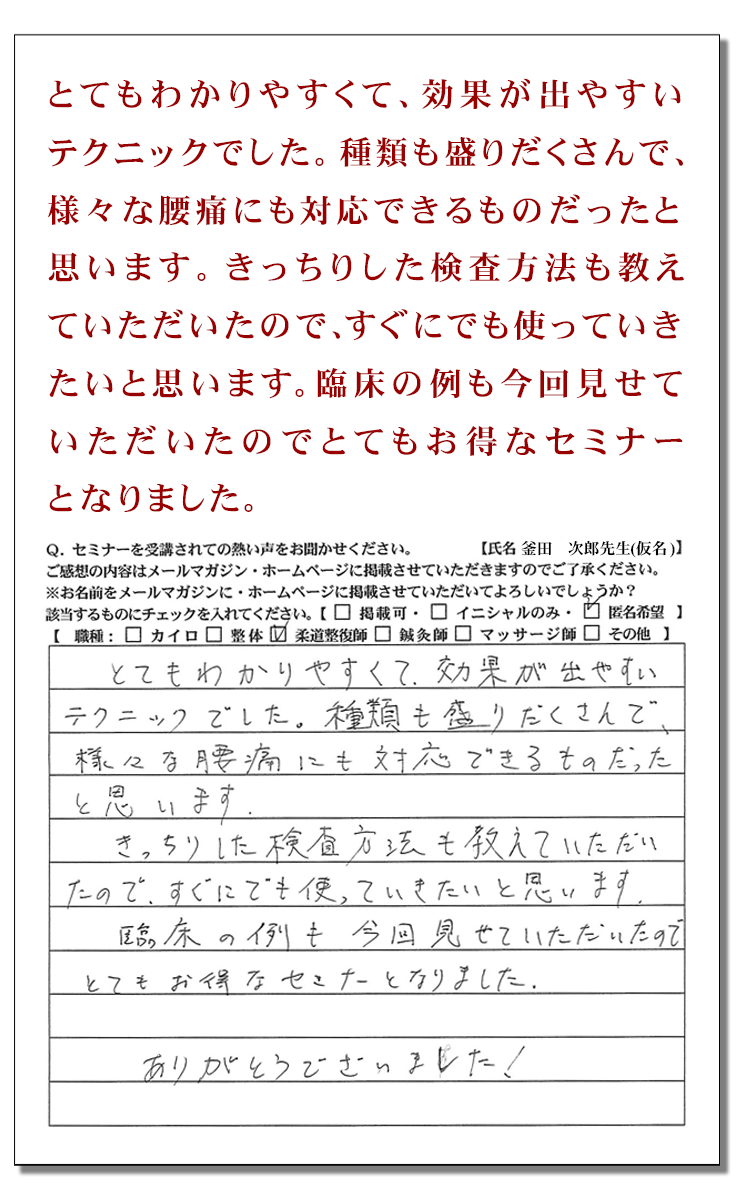 とてもわかりやすくて、効果が出やすい
テクニックでした。種類も盛りだくさんで、
様々な腰痛にも対応できるものだったと
思います。きっちりした検査方法も教え
ていただいたので、すぐにでも使っていき
たいと思います。臨床の例も今回見せて
いただいたのでとてもお得なセミナー
となりました。
Q. セミナーを受講されての熱い声をお聞かせください。 【氏名 釜田 次郎先生(仮名)】
ご感想の内容はメールマガジン・ホームページに掲載させていただきますのでご了承ください。
※お名前をメールマガジンに・ホームページに掲載させていただいてよろしいでしょうか?
該当するものにチェックを入れてください。【 □ 掲載可・ □ イニシャルのみ・ ☑ 匿名希望 】
【 職種： □ カイロ □ 整体 ☑ 柔道整復師 □ 鍼灸師 □ マッサージ師 □ その他 】
とてもわかりやすくて、効果が出やすい
テクニックでした。種類も盛りだくさんで、
様々な腰痛にも対応できるものだった
と思います.
きっちりした検査方法も教えていただい
たので、すぐにでも使っていきたいと思います.
臨床の例も今回見せていただいたので
とてもお得なセミナーとなりました.
ありがとうございました!